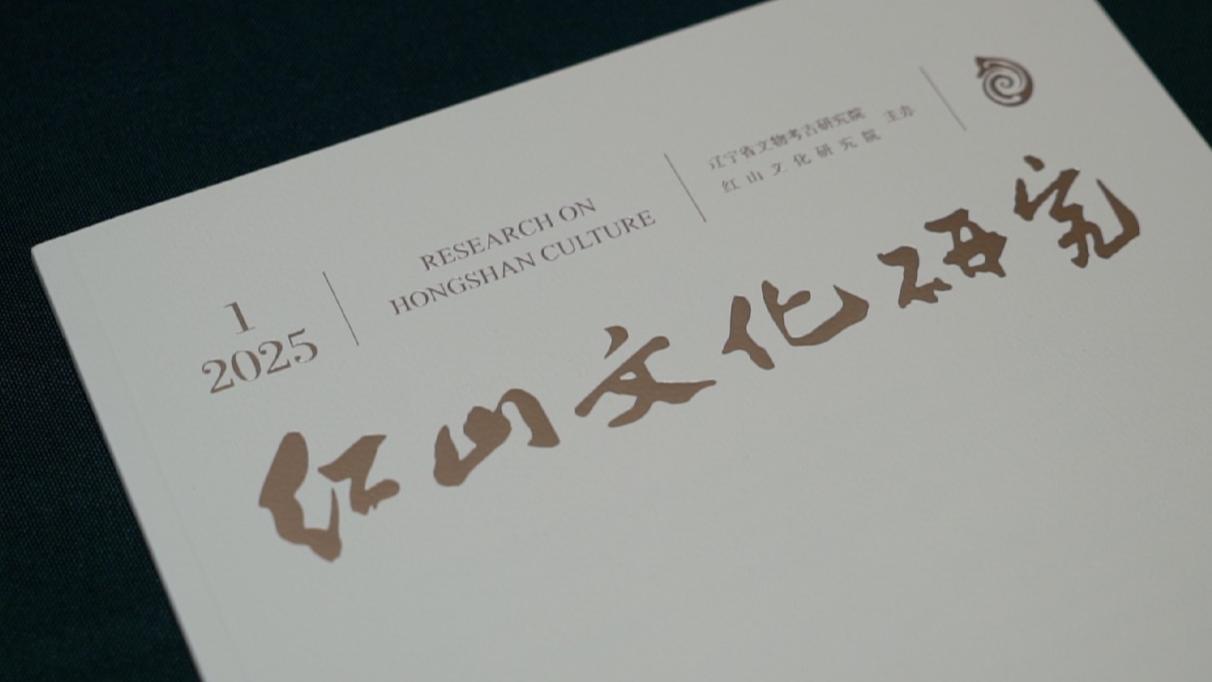 1
2025
RESEARCH ON
HONGSHAN CULTURE
辽宁省文物考古研究院 主办
红山文化研究院
红山文化研究